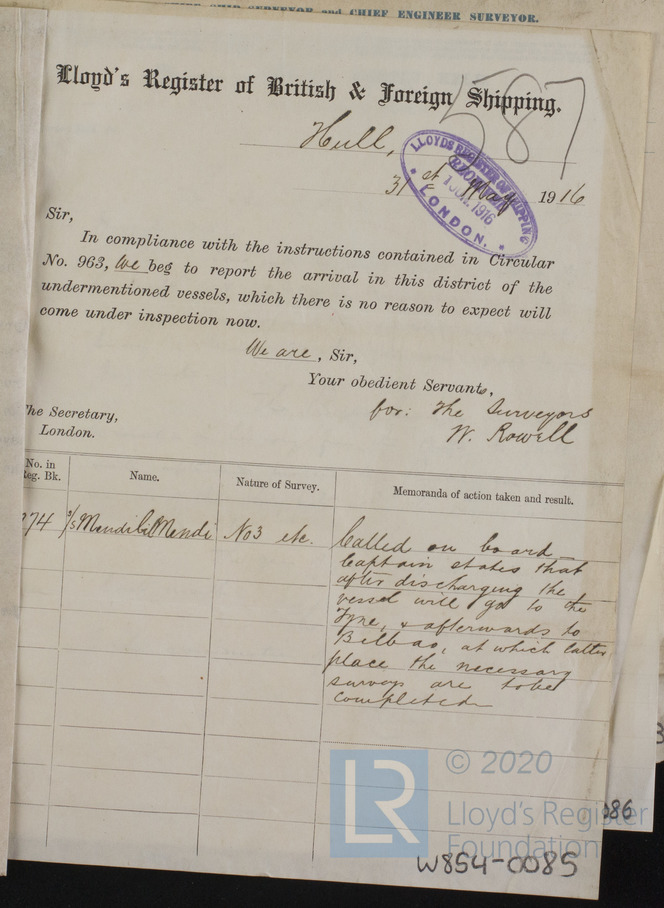 SHIP SURVEYOR and CHIEF ENGINEER SURVEYOR.
Lloyd's Register of British & Foreign Shipping.
587
Hull,
31st May 1916
LLOYDS REGISTER OF SHIPPING
1 JUN. 1916
LONDON.
Sir,
In compliance with the instructions contained in Circular
No. 963, We beg to report the arrival in this district of the
undermentioned vessels, which there is no reason to expect will
come under inspection now.
We are, Sir,
Your obedient Servants,
for: The Surveyors
W. Rowell
The Secretary,
London.
No. in
Reg. Bk.
Name.
Nature of Survey.
Memoranda of action taken and result.
74
S/s Mendibil Mendi
No 3 etc.
Called on board
Captain states that
after discharging the
vessel will go to the
Tyne, & afterwards to
Bilbao, at which latter
place the necessary
surveys are to be
completed
LR
© 2020
Lloyd's Register
Foundation
086
W854-0085